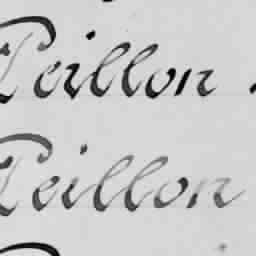 Peillon
Peillon